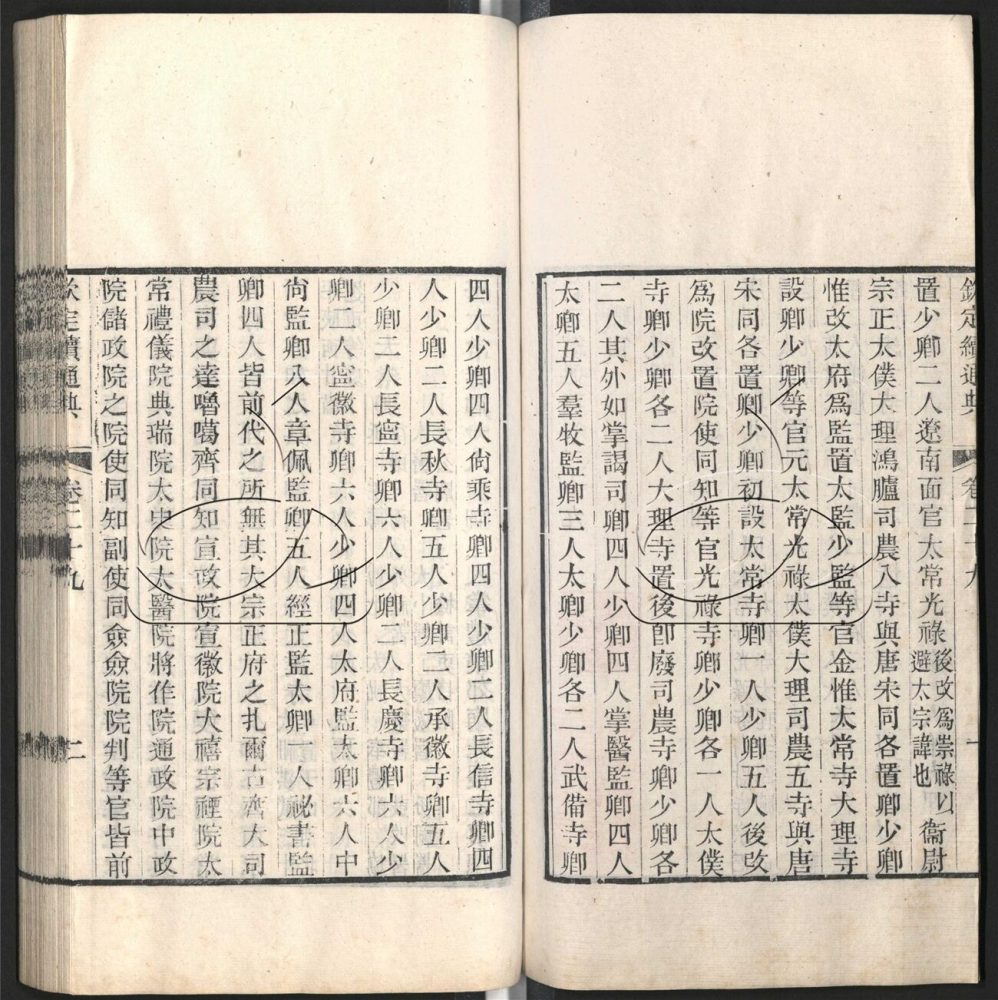 欽定續通典 卷二十九 一
置少卿二人遼南面官太常光祿後改爲崇祿以避太宗諱也衞尉
宗正太僕大理鴻臚司農八寺與唐宋同各置卿少卿
惟改太府爲監置太監少監等官金惟太常寺大理寺
設卿少卿等官元太常光祿太僕大理司農五寺與唐
宋同各置卿少卿初設太常寺卿一人少卿五人後改
爲院改置院使同知等官光祿寺卿少卿各一人太僕
寺卿少卿各二人大理寺置後卽廢司農寺卿少卿各
二人其外如掌謁司卿四人少卿四人掌醫監卿四人
太卿五人羣牧監卿三人太卿少卿各二人武備寺卿
四人少卿四人尙乘寺卿四人少卿二人長信寺卿四
人少卿二人長秋寺卿五人少卿二人承徽寺卿五人
少卿二人長寧寺卿六人少卿二人長慶寺卿六人少
卿二人寧徽寺卿六人少卿四人太府監太卿六人中
尙監卿八人章佩監卿五人經正監太卿一人祕書監
卿四人皆前代之所無其大宗正府之扎爾古齊大司
農司之達嚕噶齊同知宣政院宣徽院大禧宗禋院太
常禮儀院典瑞院太史院太醫院將作院通政院中政
院儲政院之院使同知副使同僉僉院院判等官皆前
欽定續通典 卷二十九 二